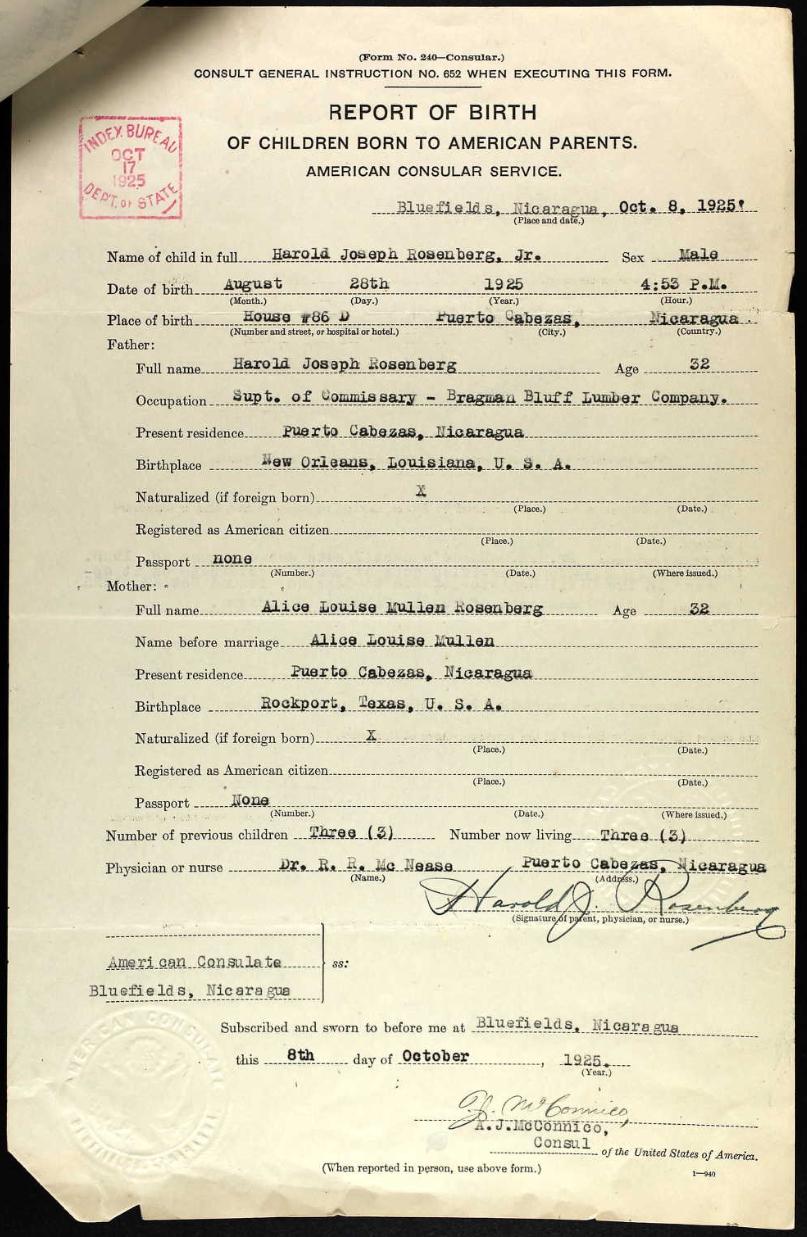 (Form No. 240—Consular.)
CONSULT GENERAL INSTRUCTION NO. 652 WHEN EXECUTING THIS FORM.
REPORT OF BIRTH
OF CHILDREN BORN TO AMERICAN PARENTS.
AMERICAN CONSULAR SERVICE.
INDEX BUREAU
OCT
17
1925
DEPT. OF STATE
Bluefields, Nicaragua, Oct. 8, 1925
(Place and date.)
Name of child in full Harold Joseph Rosenberg, Jr. Sex Male
Date of birth August 28th 1925 4:53 P.M.
(Month.) (Day.) (Year.) (Hour.)
Place of birth House #86 D Puerto Cabezas, Nicaragua.
(Number and street, or hospital or hotel.) (City.) (Country.)
Father:
Full name Harold Joseph Rosenberg Age 32
Occupation Supt. of Commissary - Bragman Bluff Lumber Company.
Present residence Puerto Cabezas, Nicaragua
Birthplace New Orleans, Louisiana, U. S. A.
Naturalized (if foreign born) X
(Place.) (Date.)
Registered as American citizen
(Place.) (Date.)
Passport none
(Number.) (Date.) (Where issued.)
Mother:
Full name Alice Louise Mullen Rosenberg Age 32
Name before marriage Alice Louise Mullen
Present residence Puerto Cabezas, Nicaragua
Birthplace Rockport, Texas, U. S. A.
Naturalized (if foreign born) X
(Place.) (Date.)
Registered as American citizen
(Place.) (Date.)
Passport None
(Number.) (Date.) (Where issued.)
Number of previous children Three (3) Number now living Three (3)
Physician or nurse Dr. R. R. Mc Nease Puerto Cabezas, Nicaragua
(Name.) (Address.)
Harold J. Rosenberg
(Signature of parent, physician, or nurse.)
American Consulate ss:
Bluefields, Nicaragua
Subscribed and sworn to before me at Bluefields, Nicaragua
this 8th day of October, 1925.
(Year.)
A.J. McConnico,
A.J.McConnico,
Consul
of the United States of America.
(When reported in person, use above form.)
1—940